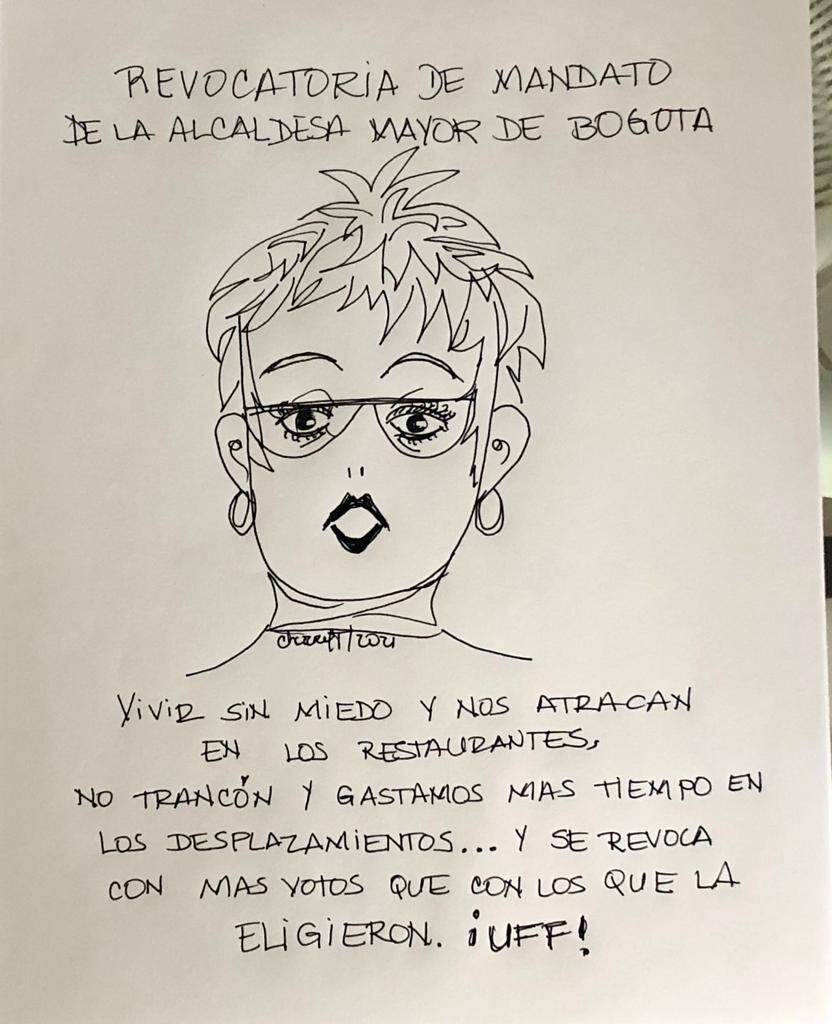 REVOCATORIA DE MANDATO
DE LA ALCALDESA MAYOR DE BOGOTA
/2021
VIVIR SIN MIEDO Y NOS ATRACAN
EN LOS RESTAURANTES,
NO TRANCÓN Y GASTAMOS MAS TIEMPO EN
LOS DESPLAZAMIENTOS... Y SE REVOCA
CON MAS VOTOS QUE CON LOS QUE LA
ELIGIERON. ¡UFF!